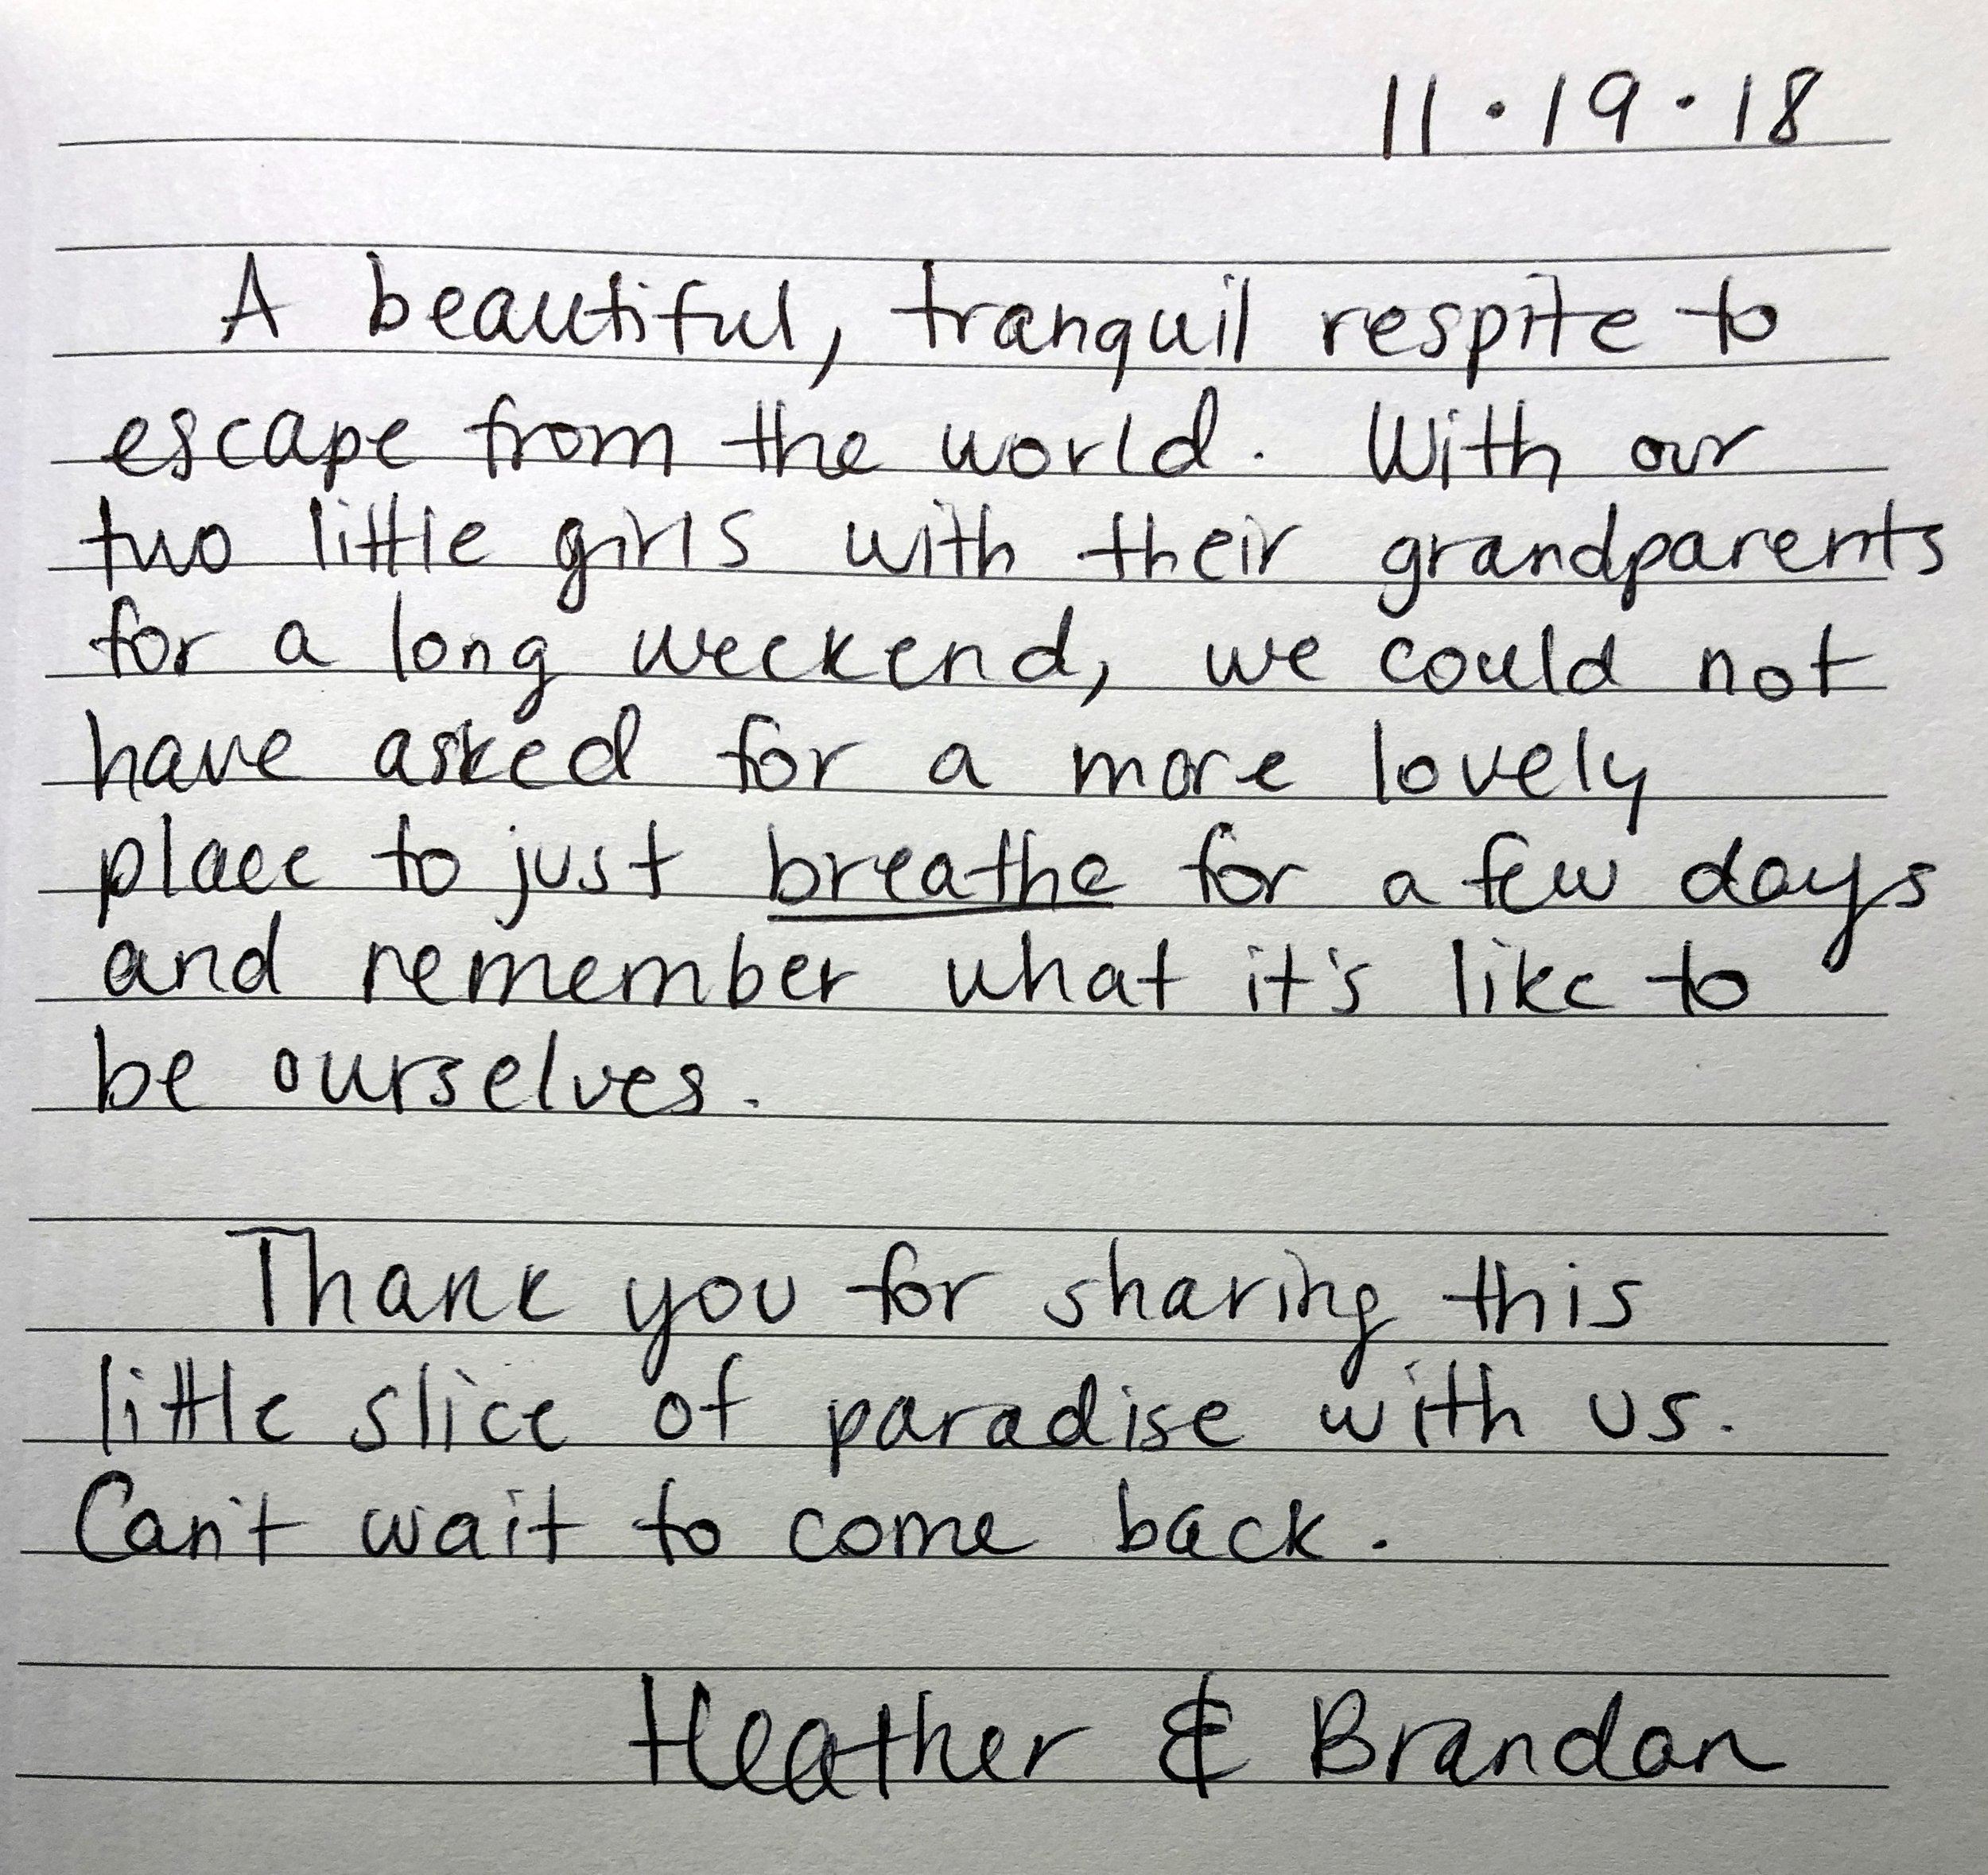 11·19·18
A beautiful, tranquil respite to
escape from the world. With our
two little girls with their grandparents
for a long weekend, we could not
have asked for a more lovely
place to just breathe for a few days
and remember what it's like to
be ourselves.
Thank you for sharing this
little slice of paradise with us.
Can't wait to come back.
Heather & Brandon